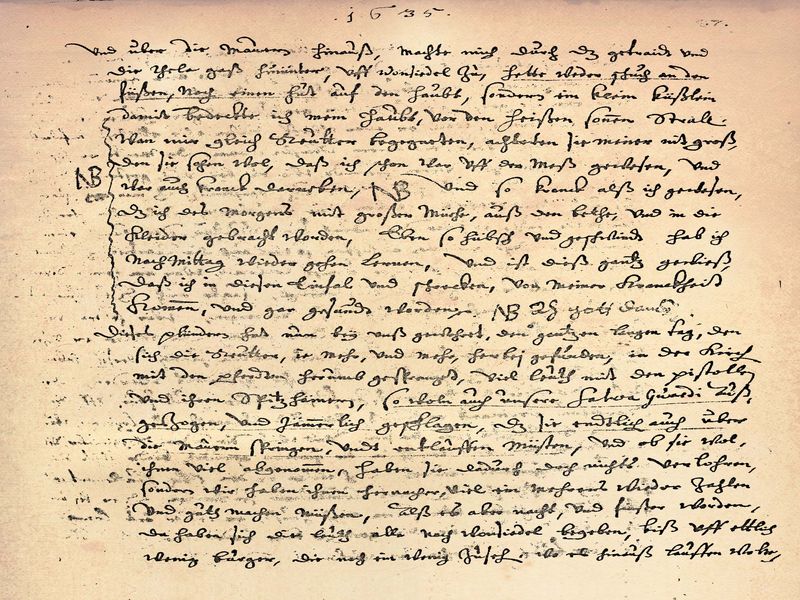 1635.
Und über die Mauern hinauß, machte mich durch dz getraidt und
die Thela gaß hinunter, uff Wonsiedel zu, hette weder schuch an den
füßen, Noch einen hut auf den haubt, sondern ein klein käpßlein
damit bedeckte ich mein haubt, vor den heißen sonnen Stral.
Wan mir gleich Reütter begegneten, achteten sie meiner nit groß,
den sie sahen wol, daß ich schon war uff der Meß gewesen, und
NB
war auch kranck darneben, NB Und so kranck alß ich gewesen,
dz ich des morgens mit großer Mühe, auß den bethe, und in die
kleider gebracht worden, Eben so hübsch und geschwind hab ich
Nach Mittag wieder gehen lernen, Und ist dieß gantz gewieß,
daß ich in diesen Einfal und schrecken, von meiner kranckheit
kommen, und gar gesundt worden, NB gott danck.
Dieses plündern hat nun bey unß gewehret, den gantzen langen tag, den
sich die Reütter, ie mehr, und mehr, herbej gefunden, in der Kirch
mit den pferden herumb gesprengt, viel leüth mit den pistollen
und ihren Spitzhämern, so wohl auch unsere Salva Guardi auß,
gezogen, und jämerlich geschlagen, dz sie endtlich auch über
die Mauern springen, undt entlauffen müsten, und ob sie wol,
ihnen viel abgenommen, haben sie dadurch doch nichts verlohren,
sondern wir haben ihnen hernacher, viel ein mehrers wieder zahlen
und guth machen müßen, Alß es aber nacht, und finster worden,
da haben sich die leüth alle nach Wonsiedel begeben, biß uff etlich
wenig bürger, die noch ein wenig hinauß lauffen